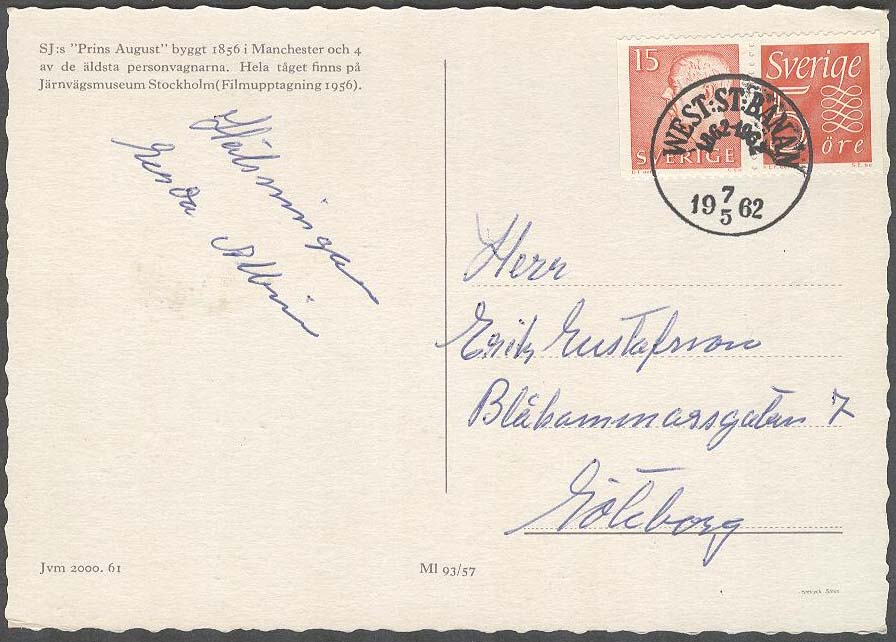 SJ:s "Prins August" byggt 1856 i Manchester och 4
av de äldsta personvagnarna. Hela tåget finns på
Järnvägsmuseum Stockholm(Filmupptagning 1956).
Hälsningar
Gerda Albin
15
SVERIGE
Sverige
öre
WEST:ST:BANAN
1862-1962
19 7/5 62
Herr
Erik Gustafsson
Blåhammarsgatan 7
Göteborg
Jvm 2000. 61
Ml 93/57